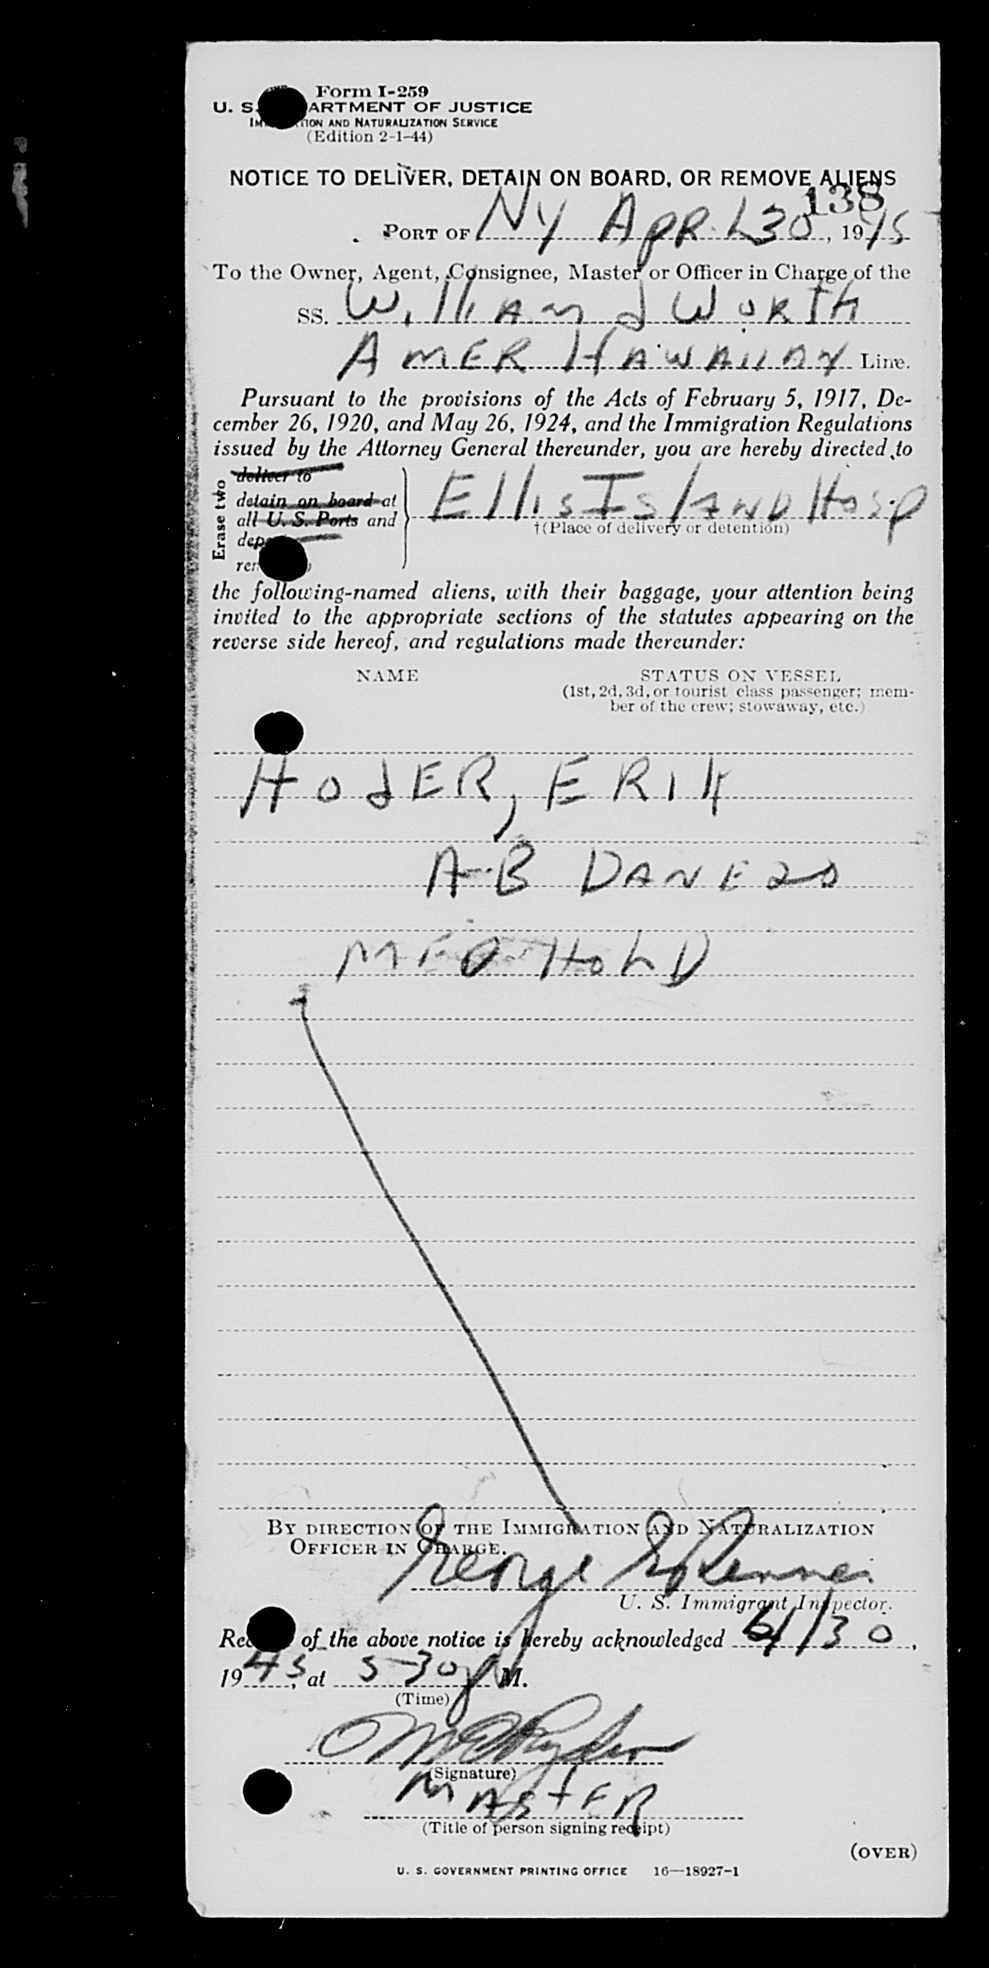 Form I-259
U. S. DEPARTMENT OF JUSTICE
IMMIGRATION AND NATURALIZATION SERVICE
(Edition 2-1-44)
NOTICE TO DELIVER, DETAIN ON BOARD, OR REMOVE ALIENS
138
PORT OF NY APRIL 30, 1945
To the Owner, Agent, Consignee, Master or Officer in Charge of the
SS. William J Worth
AMER HAWAIIAN Line.
Pursuant to the provisions of the Acts of February 5, 1917, De-
cember 26, 1920, and May 26, 1924, and the Immigration Regulations
issued by the Attorney General thereunder, you are hereby directed to
Erase two
deliver to
detain on board at
all U. S. Ports and
Ellis Island Hosp
†(Place of delivery or detention)
the following-named aliens, with their baggage, your attention being
invited to the appropriate sections of the statutes appearing on the
reverse side hereof, and regulations made thereunder:
NAME STATUS ON VESSEL
(1st, 2d, 3d, or tourist class passenger; mem-
ber of the crew; stowaway, etc.)
HOJER, ERIK
A-B DANE 20
MED HOLD
BY DIRECTION OF THE IMMIGRATION AND NATURALIZATION
OFFICER IN CHARGE.
George
U. S. Immigrant Inspector.
Receipt of the above notice is hereby acknowledged 4/30,
1945, at 5-30 p M.
(Time)
(Signature)
MASTER
(Title of person signing receipt)
(OVER)
U. S. GOVERNMENT PRINTING OFFICE 16—18927-1